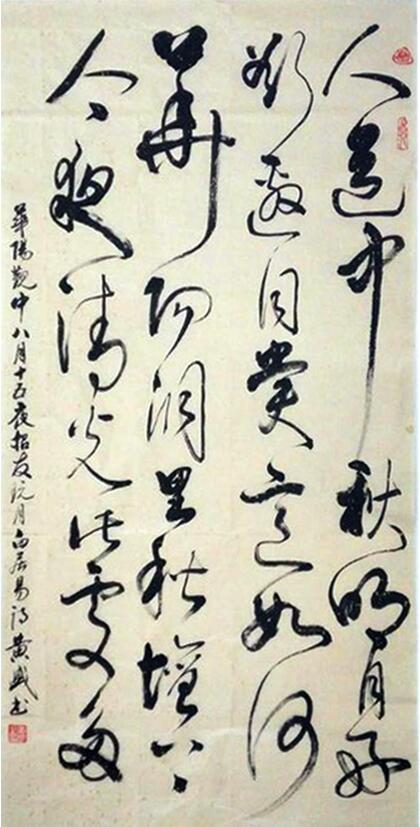 人道中秋明月好
欲邀同賞意如何
華阳洞里秋壇上
今夜清光此處多
華陽觀中八月十五夜招友玩月白居易诗黄书